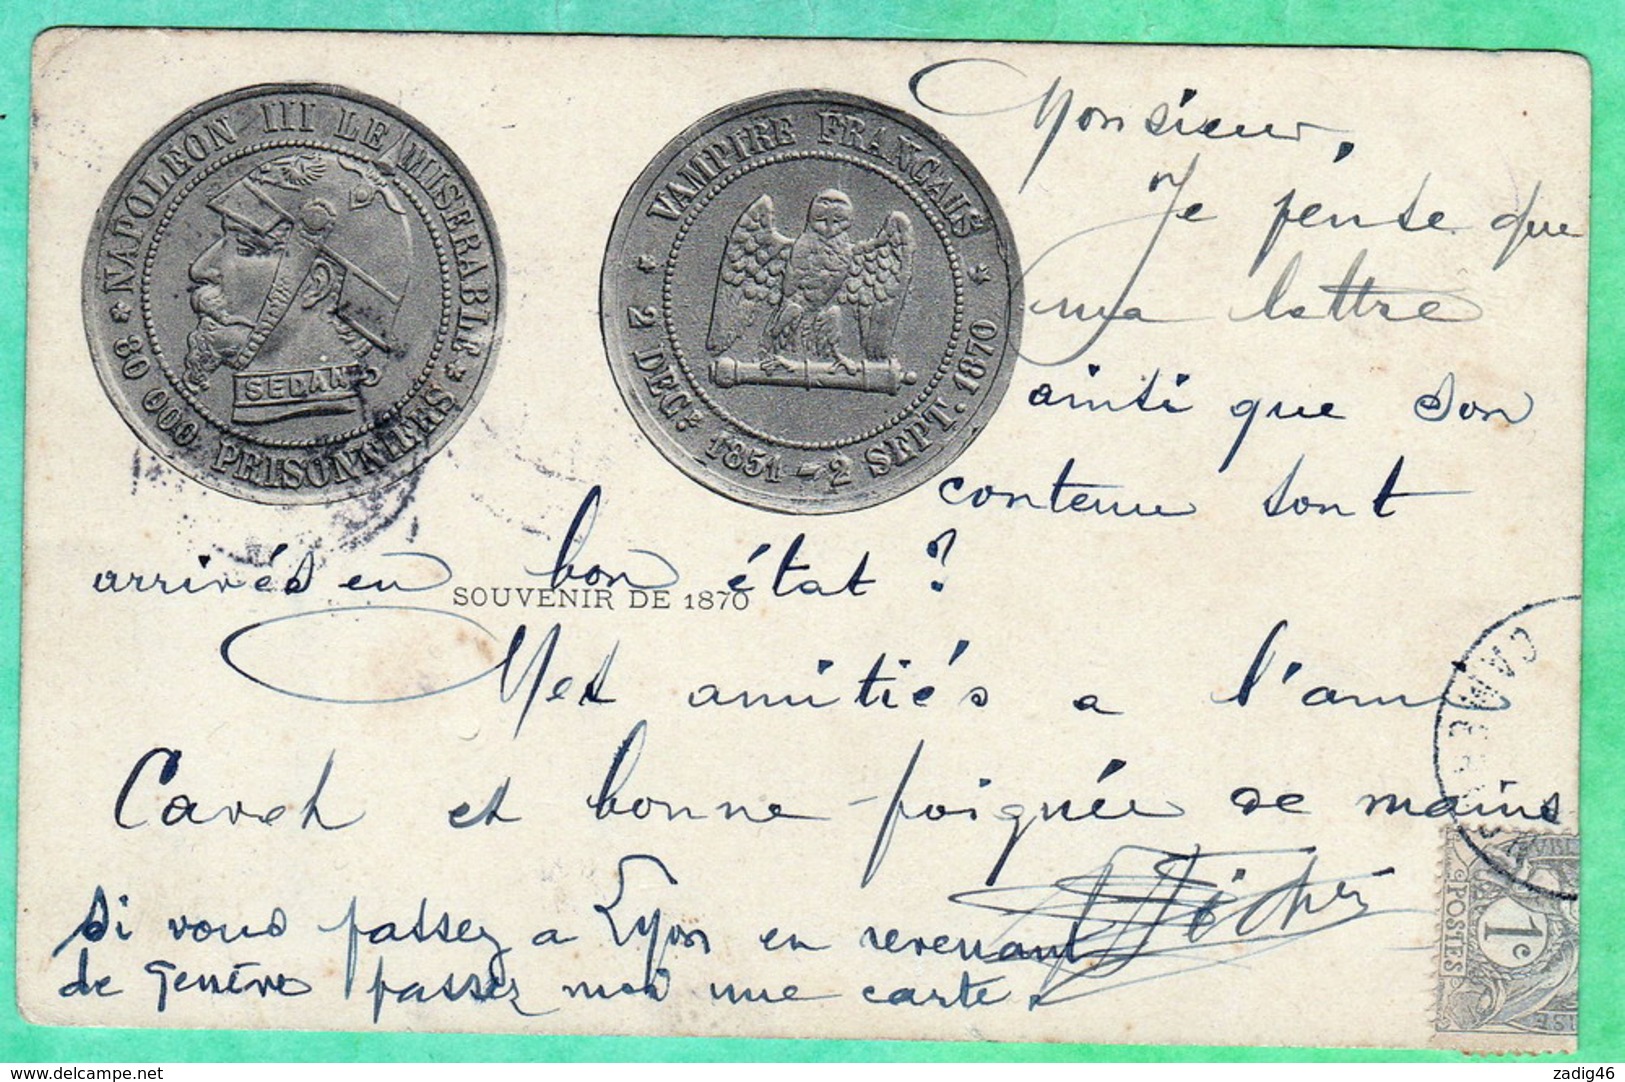 NAPOLEON III LE MISERABLE
* 80 000 PRISONNIERS *
SEDAN
VAMPIRE FRANCAIS
* 2 DEC. 1851 - 2 SEPT. 1870 *
Monsieur,
Je pense que
ma lettre
ainsi que son
contenu sont
arrivés en bon état ?
SOUVENIR DE 1870
Mes amitiés a l'ami
et bonne poignée de mains
si vous passez a Lyon en revenant
de Genève passez moi une carte.
POSTES
1c
www.delcampe.net
zadig46